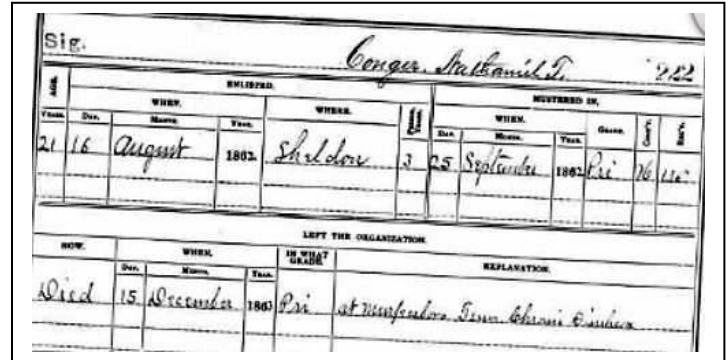 Sig. Conger, Nathaniel T. 922
AGE. ENLISTED. MUSTERED IN,
WHEN. WHERE. WHEN. GRADE.
YEARS. DAY. MONTH. YEAR. YEARS. DAY. MONTH. YEAR.
21 16 August 1862. Sheldon 3 25 September 1862 Pri
LEFT THE ORGANIZATION.
HOW. WHEN. IN WHAT GRADE. EXPLANATION.
DAY. MONTH. YEAR.
Died 15 December 1863 Pri at Tenn.